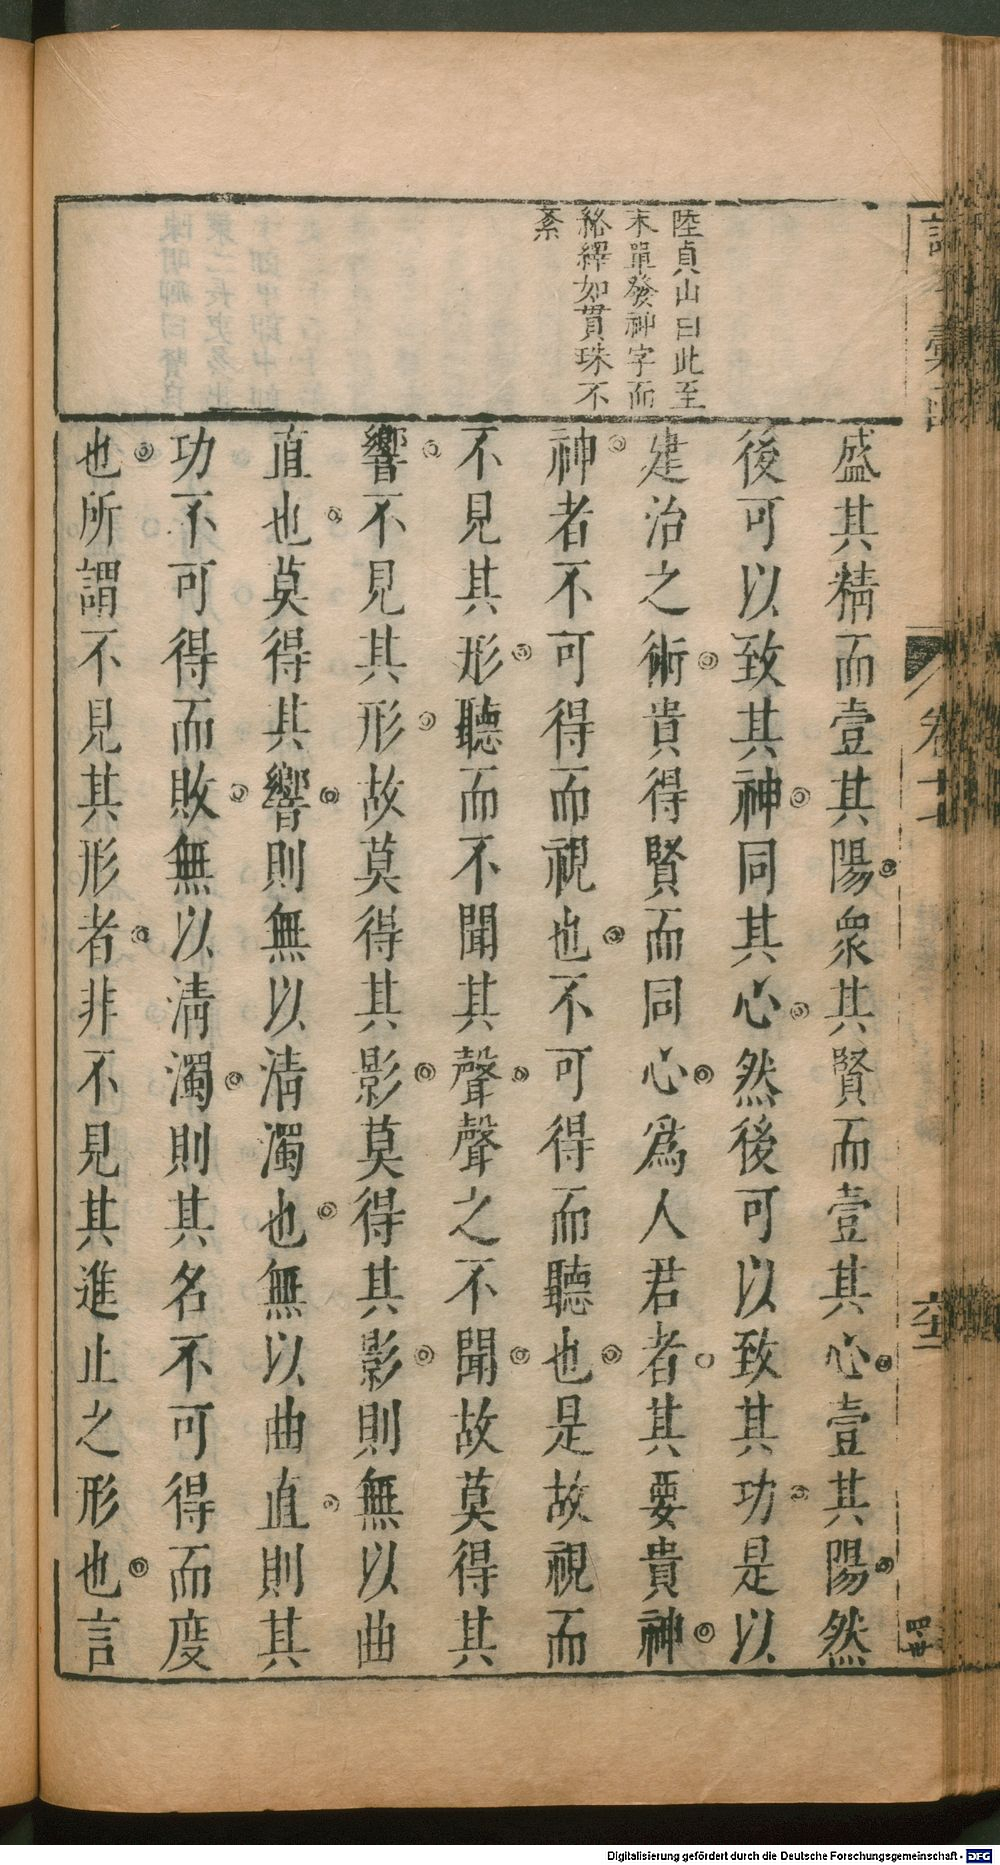 陸貞山曰此至
末單發神字而
絡繹如貫珠不
紊
盛其精而壹其陽衆其賢而壹其心壹其陽然
後可以致其神同其心然後可以致其功是以
建治之術貴得賢而同心爲人君者其要貴神
神者不可得而視也不可得而聽也是故視而
不見其形聽而不聞其聲聲之不聞故莫得其
響不見其形故莫得其影莫得其影則無以曲
直也莫得其響則無以清濁也無以曲直則其
功不可得而敗無以淸濁則其名不可得而度
也所謂不見其形者非不見其進止之形也言
彙
卷十
Digitalisierung gefördert durch die Deutsche Forschungsgemeinschaft - DFG